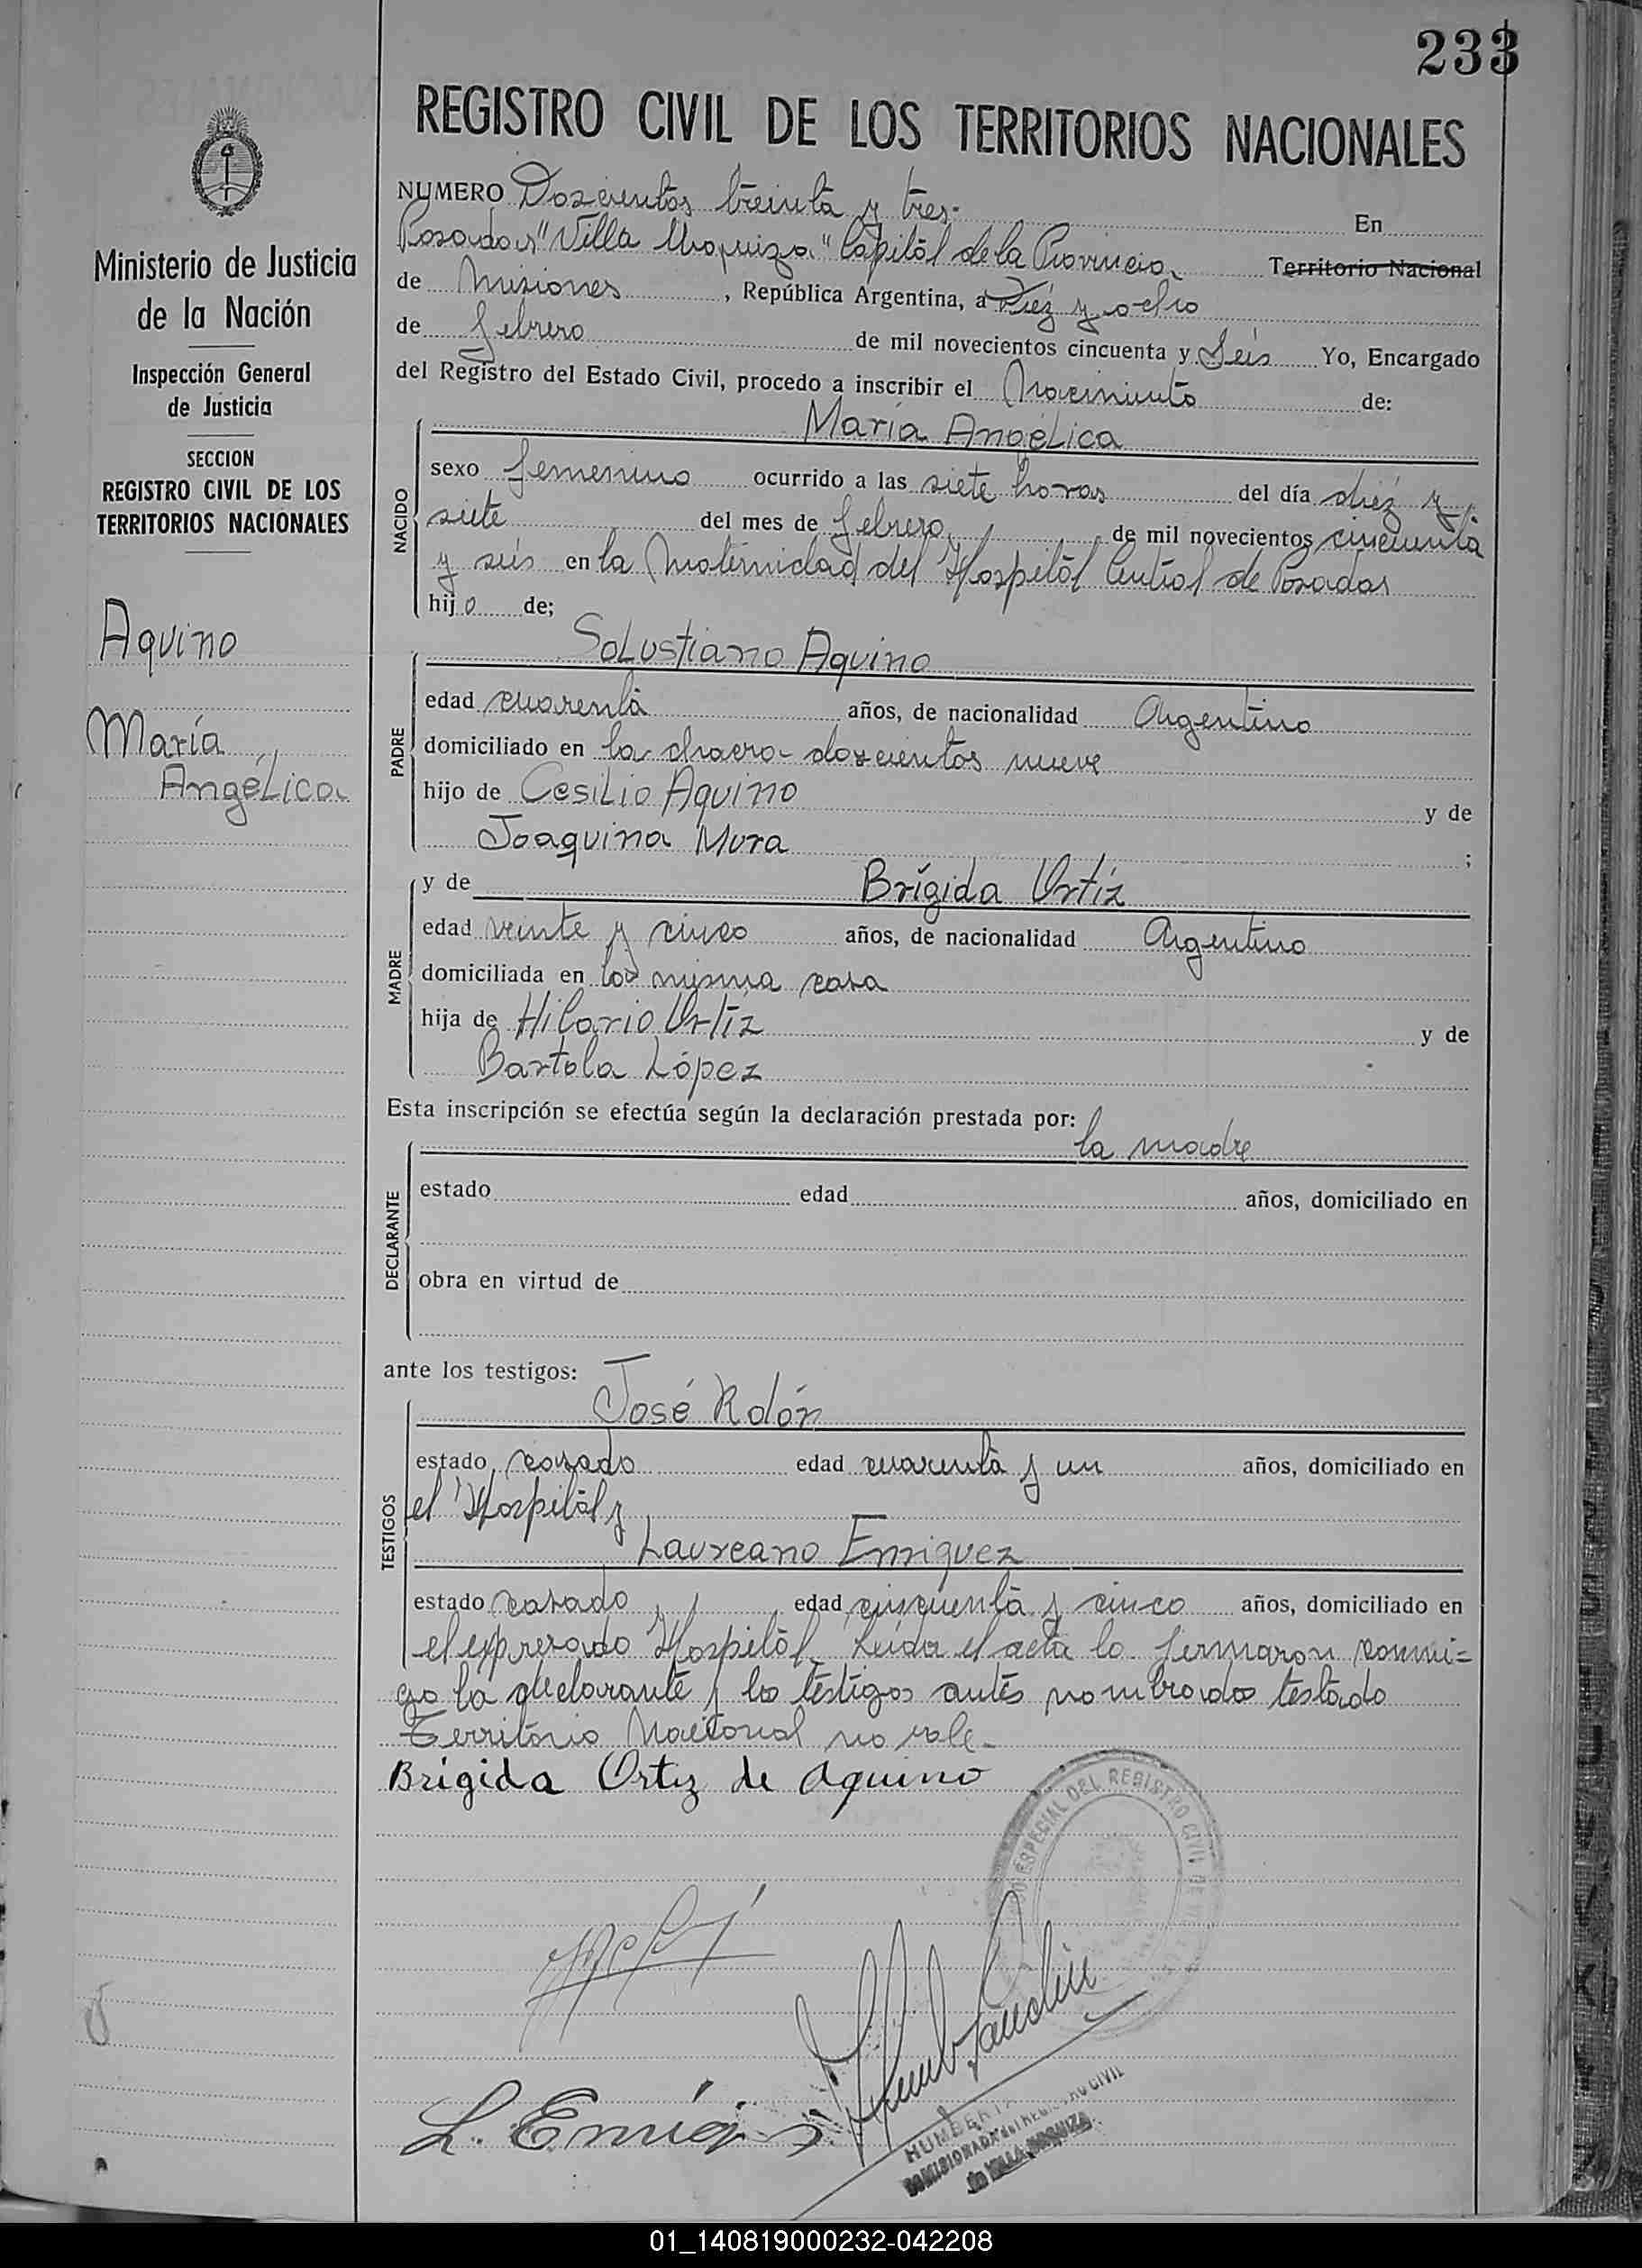 233
REGISTRO CIVIL DE LOS TERRITORIOS NACIONALES
Ministerio de Justicia
de la Nación
Inspección General
de Justicia
SECCION
REGISTRO CIVIL DE LOS
TERRITORIOS NACIONALES
Aquino
María
Angélica
NUMERO Doscientos treinta y tres. En
Posadas "Villa Urquiza" Capital de la Provincia Territorio Nacional
de Misiones, República Argentina, a diéz y ocho
de febrero de mil novecientos cincuenta y Seis Yo, Encargado
del Registro del Estado Civil, procedo a inscribir el Nacimiento de:
María Angélica
NACIDO
sexo femenino ocurrido a las siete horas del día diéz y
siete del mes de febrero de mil novecientos cincuenta
y seis en la Maternidad del Hospital Central de Posadas
hijo de;
Salustiano Aquino
PADRE
edad cuarenta años, de nacionalidad Argentino
domiciliado en la chacra doscientos nueve
hijo de Cesilio Aquino y de
Joaquina Mura ;
y de Brígida Ortíz
MADRE
edad veinte y cinco años, de nacionalidad Argentina
domiciliada en la misma casa
hija de Hilario Ortíz y de
Bartola López
Esta inscripción se efectúa según la declaración prestada por:
la madre
DECLARANTE
estado edad años, domiciliado en
obra en virtud de
ante los testigos:
José Rolón
TESTIGOS
estado casado edad cuarenta y un años, domiciliado en
el Hospital y
Laureano Enriquez
estado casado edad cinquenta y cinco años, domiciliado en
el expresado Hospital. Leída el acta la firmaron conmi=
go la declarante y los testigos antes nombrados testado
Territorio Nacional no vale-
Brigida Ortiz de Aquino
ESPECIAL DEL REGISTRO CIVIL DE
L. Enriq
HUMBERT
COMISIONADO del REGISTRO CIVIL
de VILLA URQUIZA
01_140819000232-042208